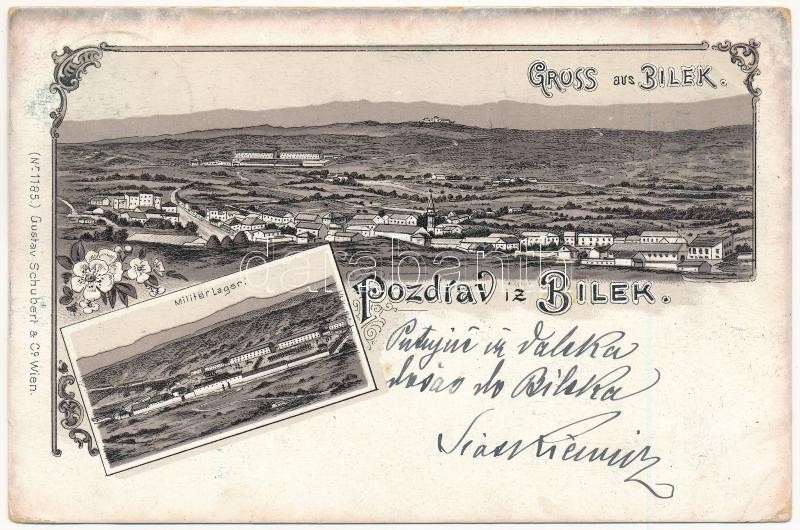 GRUSS aus BILEK.
(No 1185.) Gustav Schubert & Co Wien.
Militärlager.
Pozdrav iz BILEK.
Putujuć iz daleka
došao do Bileka
darabanth